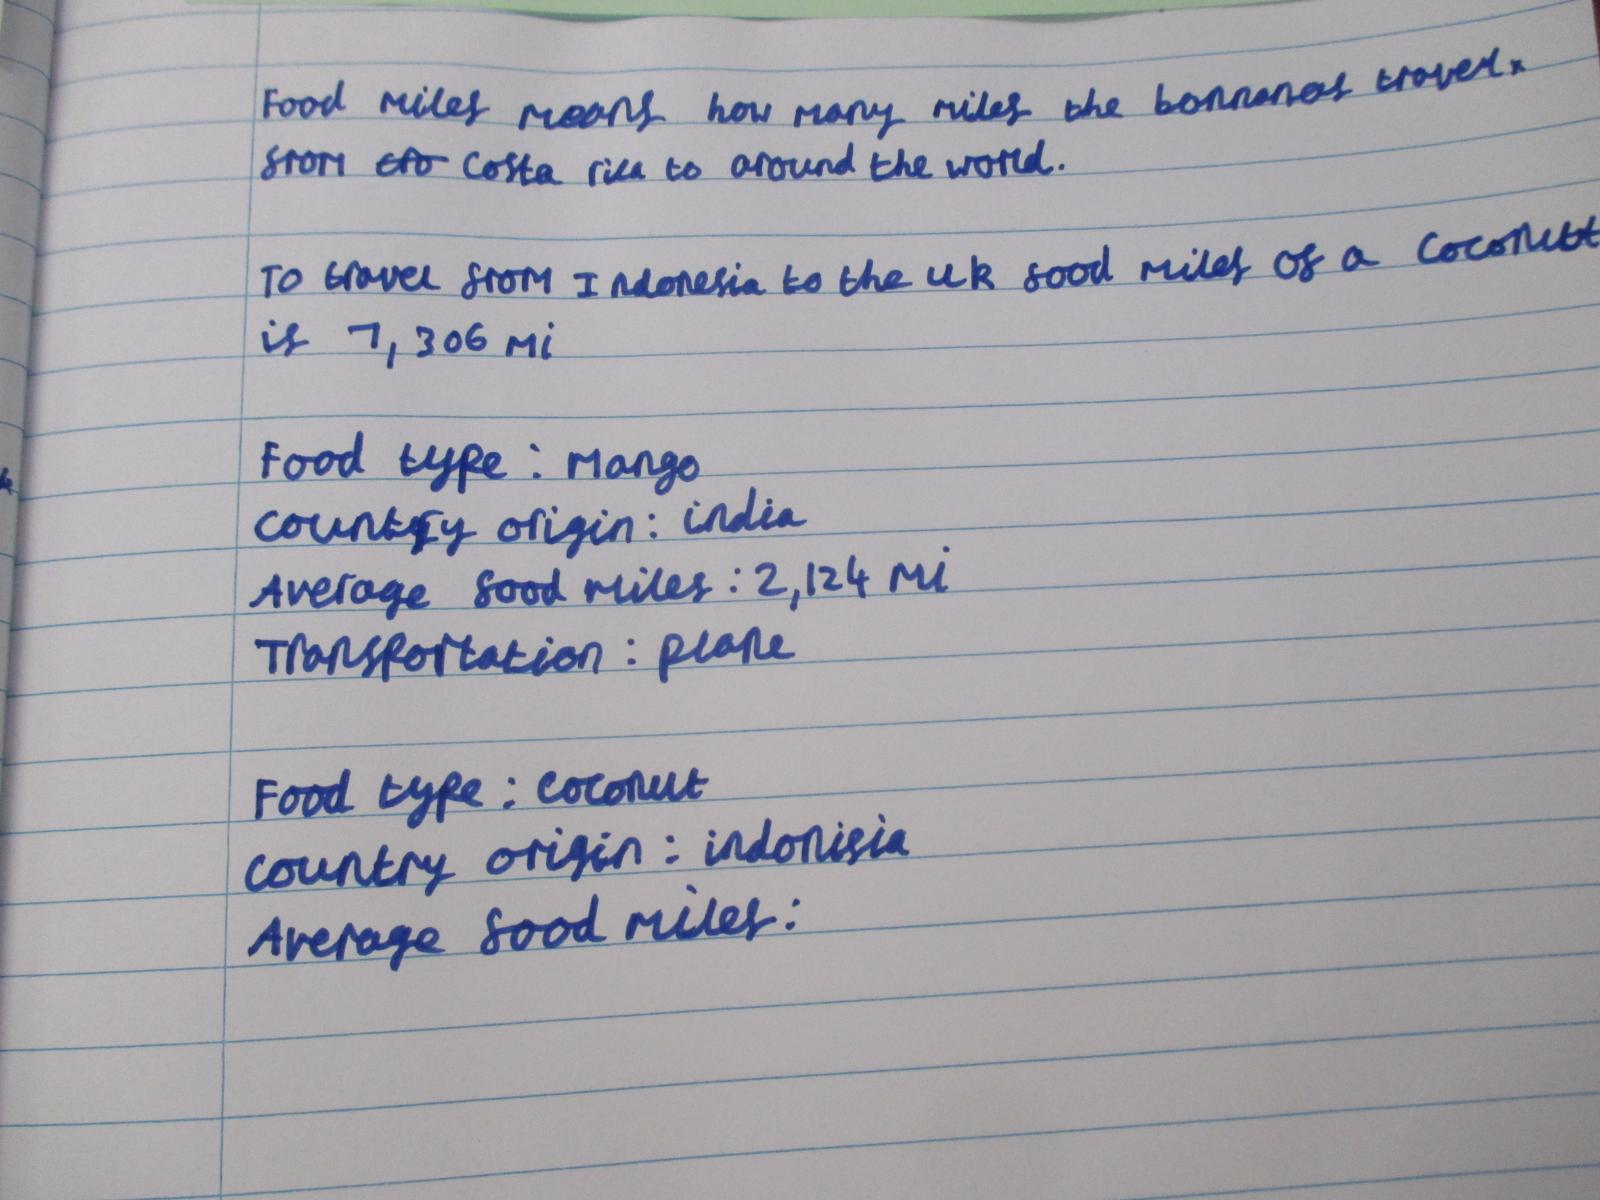 Food miles means how many miles the bonnanas travel.
from Costa rica to around the world.
To travel from Indonesia to the uk food miles of a Coconut
is 7,306 mi
Food type : Mango
country origin : india
Average food miles : 2,124 mi
Transportation : plane
Food type : Coconut
country origin : indonisia
Average food miles :